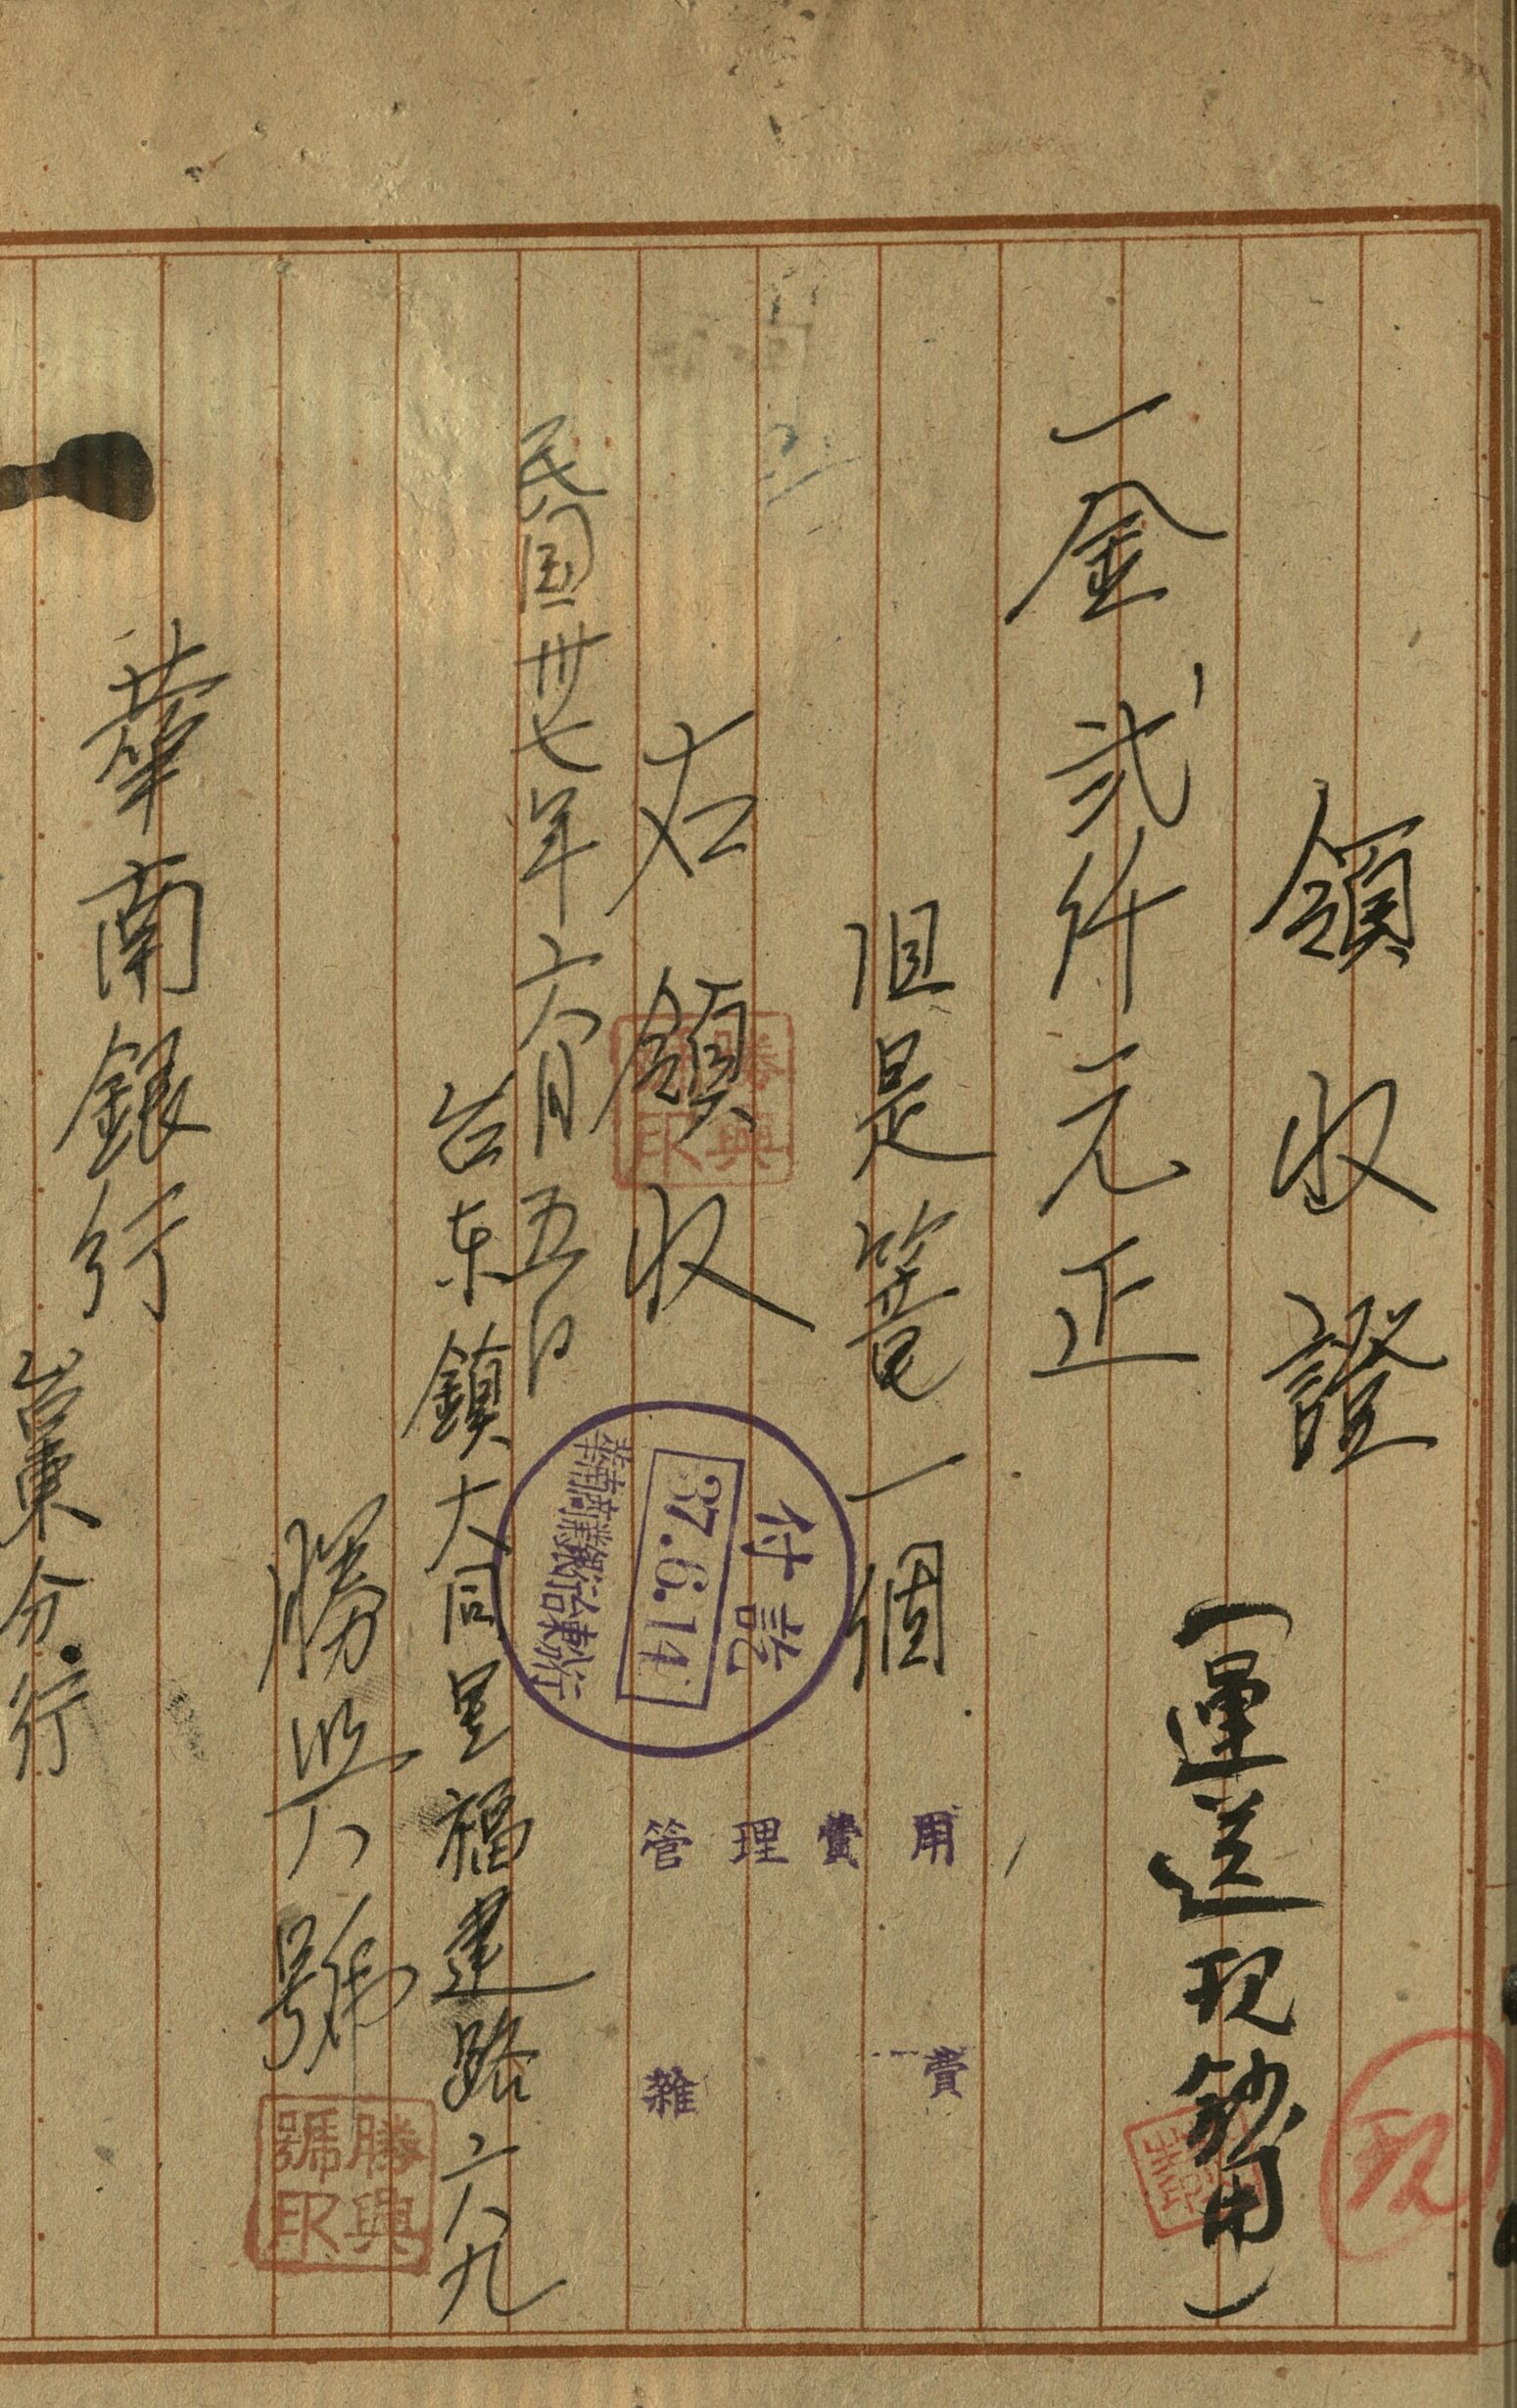 領收證
(運送現鈔用)
現
一金貳仟元正
但是篭一個
右領收
勝興號印
民国卅七年六月五日
台东鎮大同里福建路六六九
勝興號
勝興號印
華南銀行
台東分行
付訖
37.6.14
華南商業銀行台東分行
管理費用
雜費